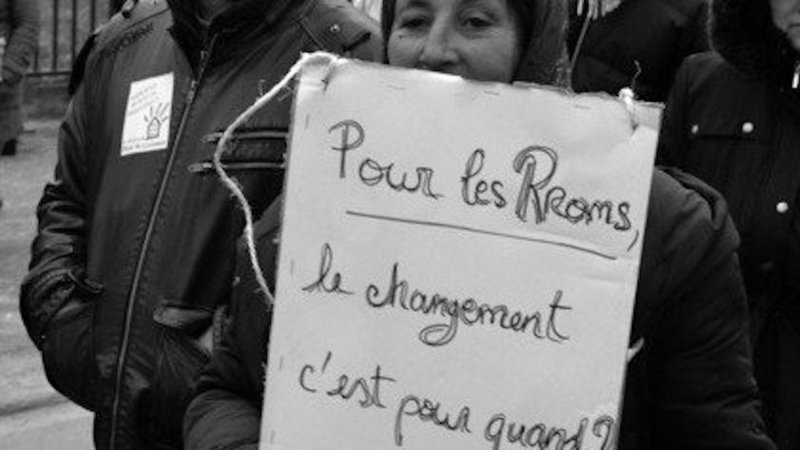 Pour les Rroms,
le changement
c'est pour quand?